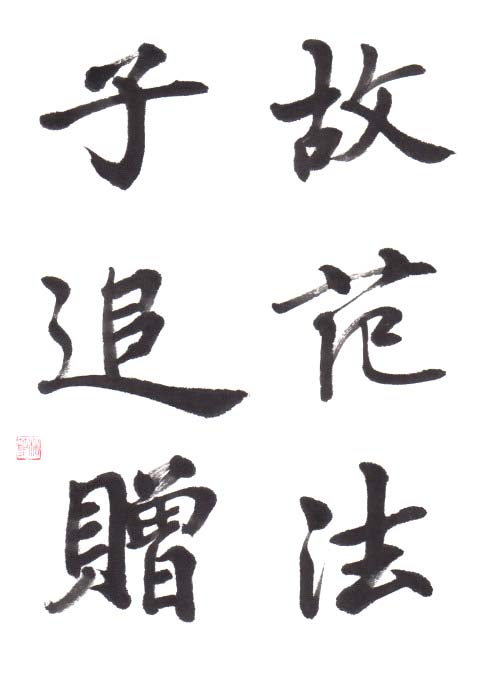 故范法
子追贈